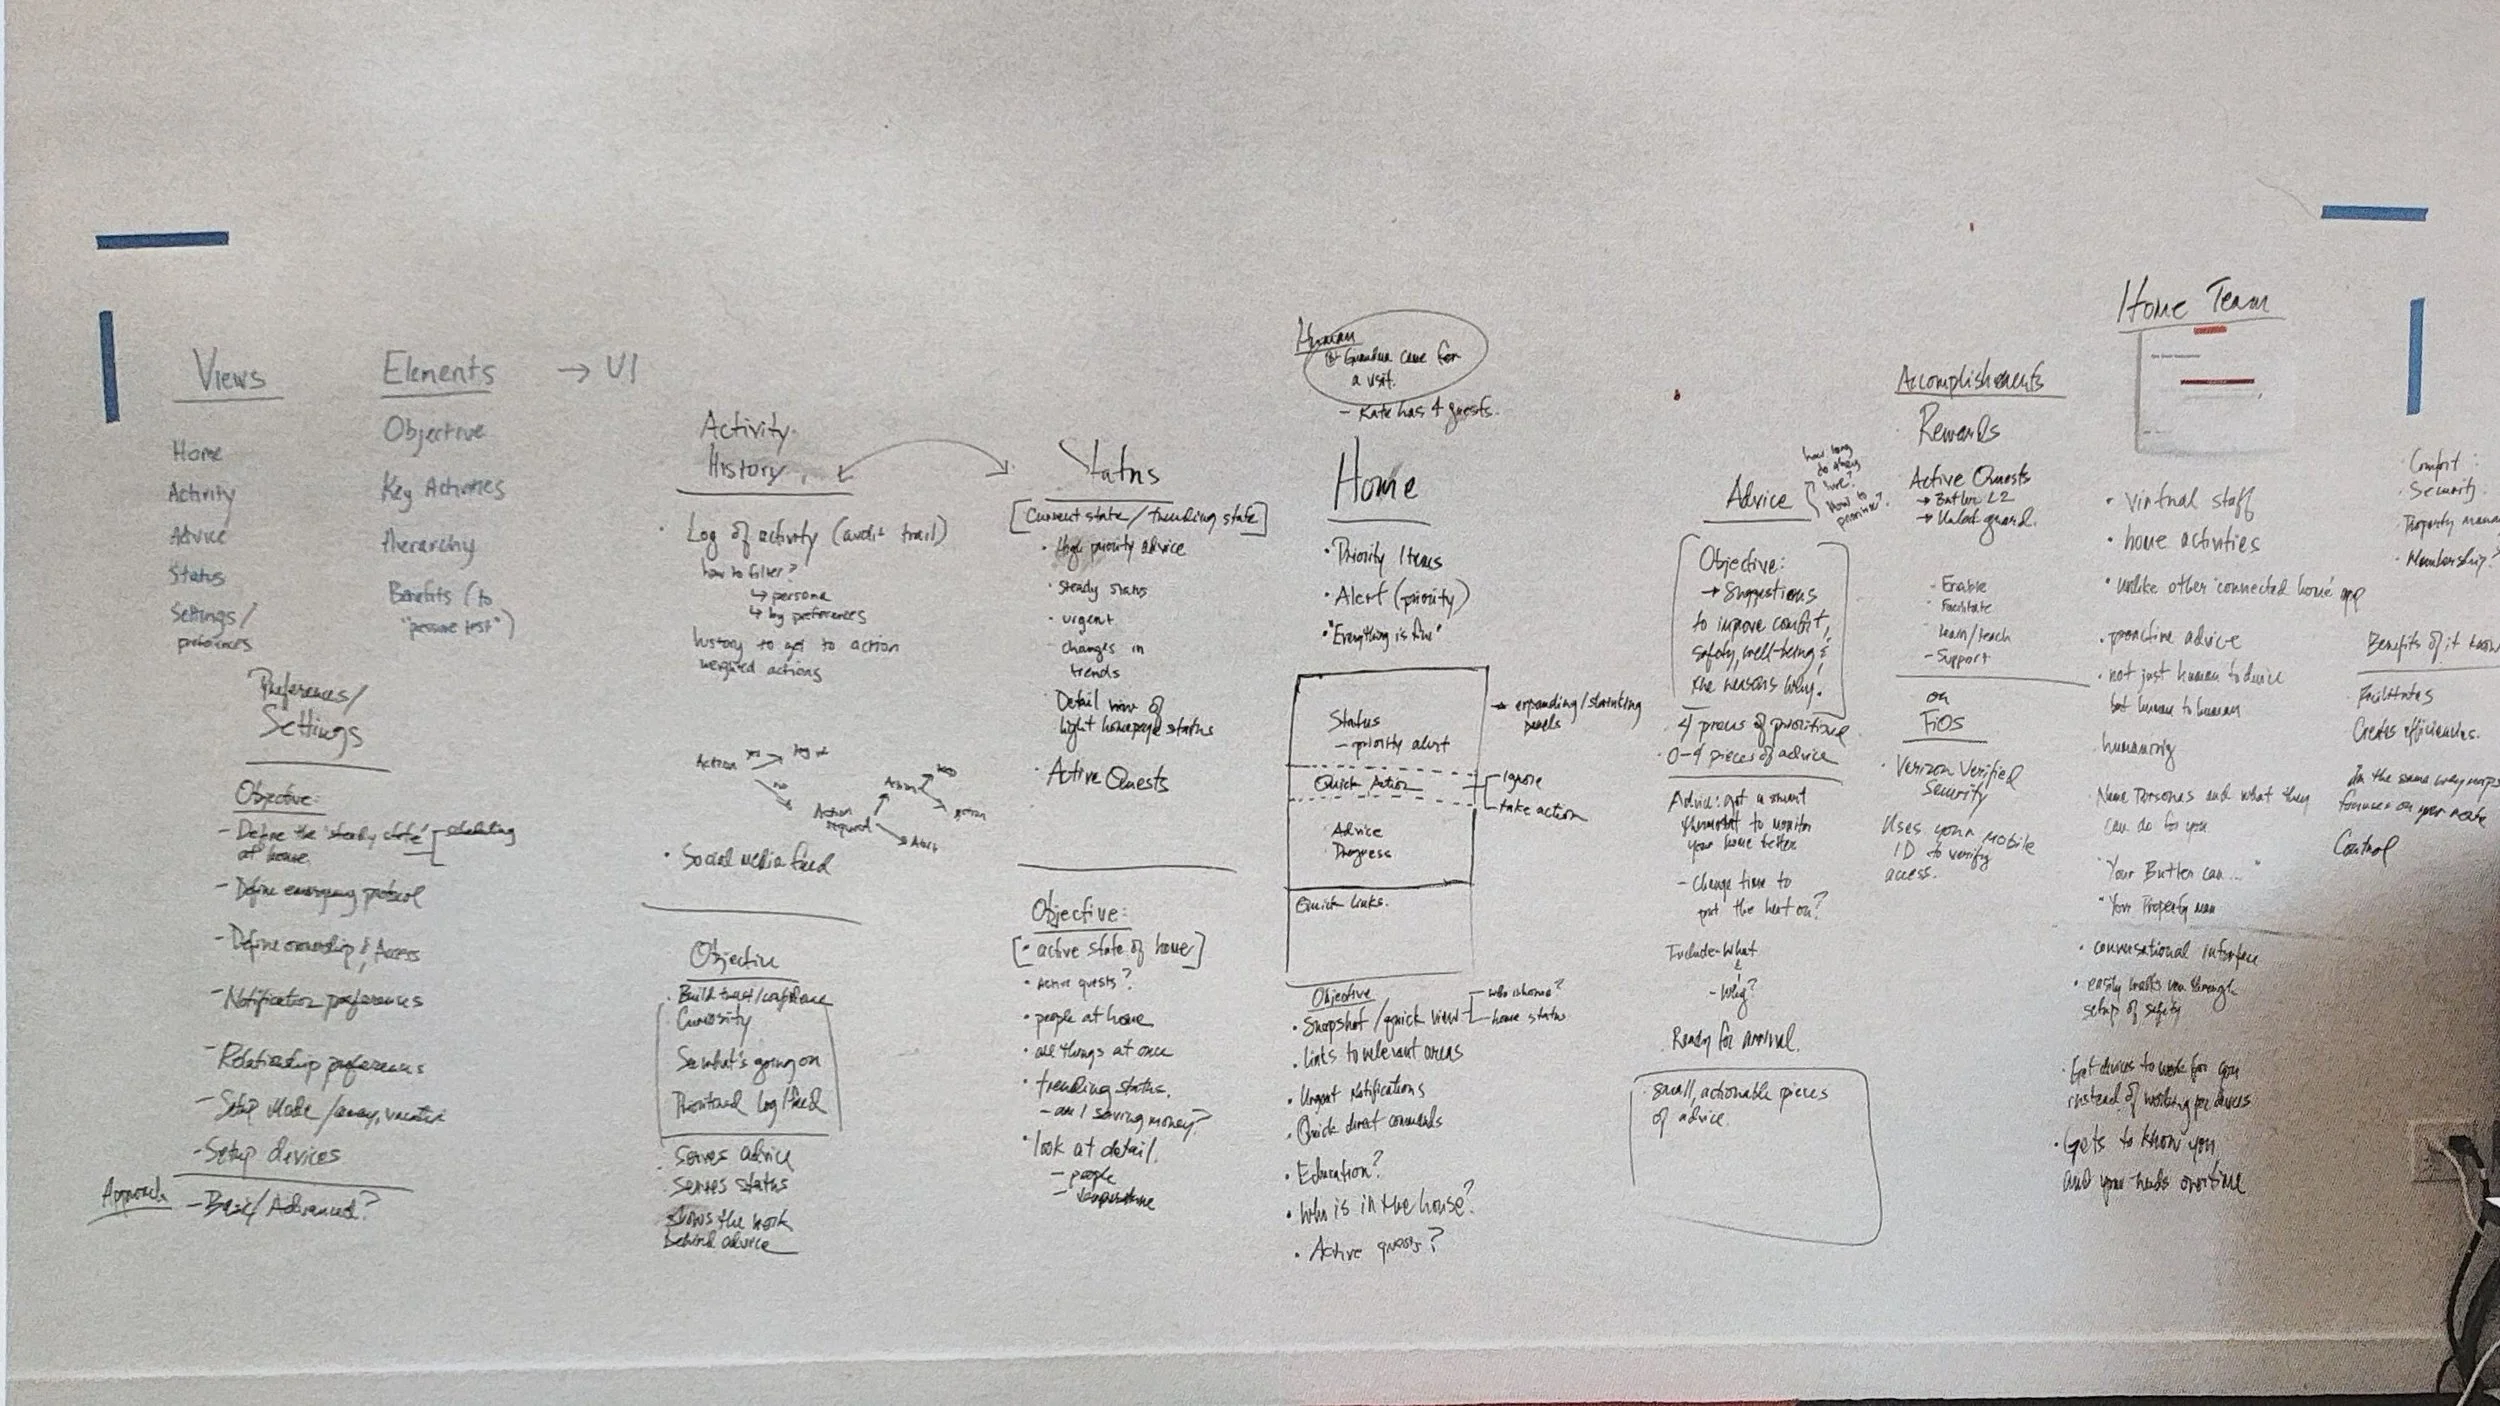 Views
Home
Activity
Advice
Status
Settings/
preferences
Elements → UI
Objective
Key Activities
Hierarchy
Benefits (to
"pressure test")
Preferences/
Settings
Objective:
- Define the "steady state"
at home.
- Define emergency protocol
- Define ownership & Access
- Notification preferences
- Relationship preferences
- Setup Mode / away, vacation
- Setup devices
Approach
- Basic/Advanced?
Activity
History
• Log of activity (audit trail)
how to filter?
↳ persona
↳ by preferences
history to get to action
weighted actions
Action
yes
log it
no
Action
required
Action
Alert
• Social media feed
Objective
• Build trust/confidence
Curiosity
See what's going on
Prioritized Log/feed
Serves advice
Serves status
Shows the work
behind advice
Status
[Current state / trending state]
• High priority advice
• steady status
• urgent
• changes in
trends
Detail view of
light homepage status
• Active Quests
Objective:
[• active state of home]
• Active quests?
• people at home
• all things at once
• trending status.
- am I saving money?
• look at detail.
- people
- temperature
Human
Grandma came for
a visit.
- Kate has 4 guests.
Home
• Priority Items
• Alert (priority)
• "Everything is fine"
Status
- priority alert
Quick Action
Advice
Progress
Quick links.
→ expanding/shrinking
panels
ignore
take action
Objective
• Snapshot / quick view
- who is home?
- home status
• links to relevant areas
• Urgent Notifications
• Quick direct commands
• Education?
• Who is in the house?
• Active quests?
Advice
how long
do they
live?
How to
prioritize?
Objective:
→ Suggestions
to improve comfort,
safety, well-being &
the reasons why.
• 4 pieces of prioritized
• 0-4 pieces of advice
Advice: get a smart
thermostat to monitor
your home better
- Change time to
put the heat on?
Include - What
&
- Why?
Ready for arrival.
• Small, actionable pieces
of advice.
Accomplishments
Rewards
Active Quests
→ Butler L2
→ Unlock guard.
- Enable
- Facilitate
- learn/teach
- Support
on
FiOS
• Verizon Verified
Security
Uses your mobile
ID to verify
access.
Home Team
• virtual staff
• home activities
• unlike other 'connected home' app
• proactive advice
• not just human to device
but human to human
humanizing
Name Personas and what they
can do for you
"Your Butler can..."
"Your Property man
• conversational interface
• easily walks you through
setup of safety
• Get devices to work for you
instead of working for devices
• Gets to know you
and your needs overtime
• Comfort
• Security
• Property mana
• Membership?
Benefits of it know
Facilitates
Creates efficiencies.
In the same way maps
Control